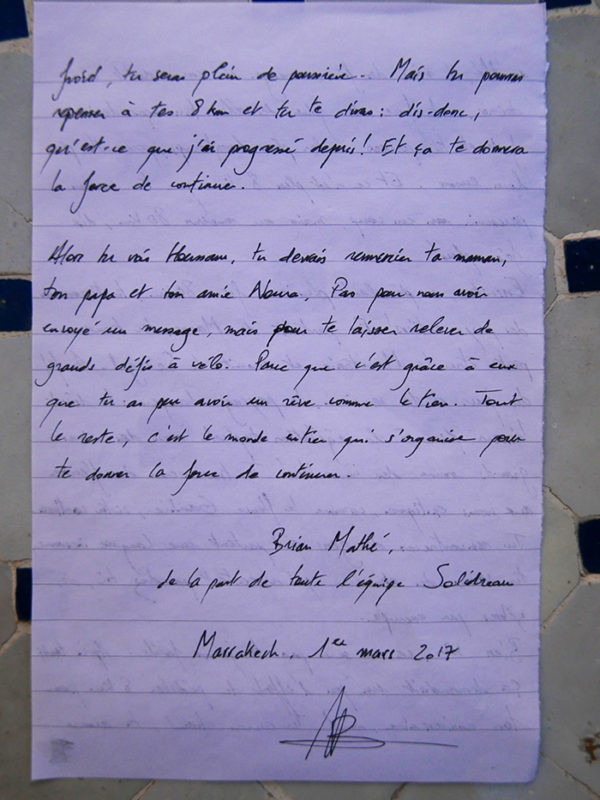 froid, tu seras plein de poussière. Mais tu pourras
repenser à tes 8 km et tu te diras : dis-donc,
qu'est-ce que j'ai progressé depuis ! Et ça te donnera
la force de continuer.
Alors tu vois Houmam, tu devrais remercier ta maman,
ton papa et ton amie Noura, Pas pour nous avoir
envoyé un message, mais pour te laisser relever de
grands défis à vélo. Parce que c'est grâce à eux
que tu as pu avoir un rêve comme le tien. Tout
le reste, c'est le monde entier qui s'organise pour
te donner la force de continuer.
Brian Mathé,
de la part de toute l'équipe Solidreau
Marrakech, 1er mars 2017